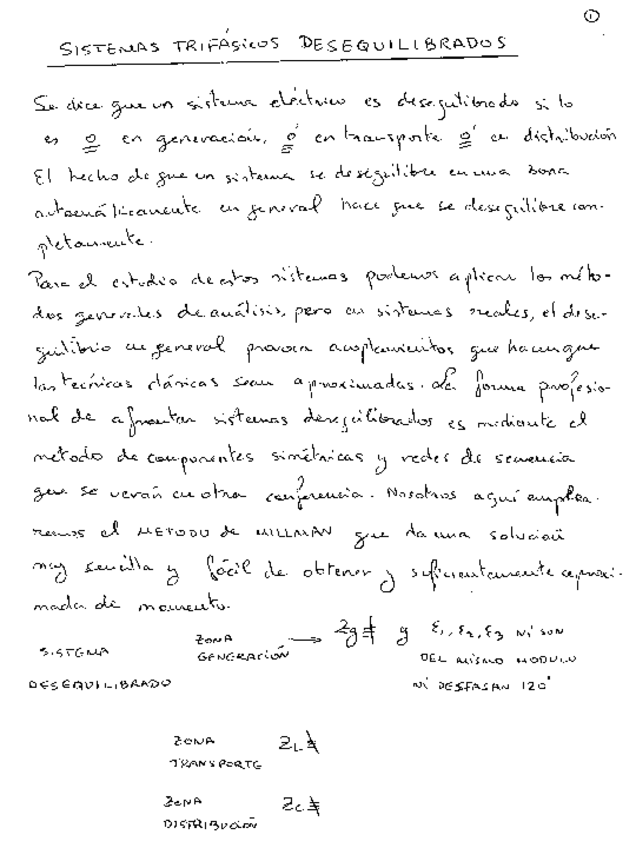 ①
SISTEMAS TRIFÁSICOS DESEQUILIBRADOS
Se dice que un sistema eléctrico es desequilibrado si lo
es o en generación, o' en transporte o' en distribución
El hecho de que un sistema se desequilibre en una zona
automáticamente en general hace que se desequilibre com-
pletamente.
Para el estudio de estos sistemas podemos aplicar los méto-
dos generales de análisis, pero en sistemas reales, el dese-
quilibrio en general provoca acoplamientos que hacen que
las tecnicas clásicas sean aproximadas. La forma profesio-
nal de afrontar sistemas desequilibrados es mediante el
metodo de componentes simétricas y redes de secuencia
que se verán en otra conferencia. Nosotros aquí emplea-
remos el METODO de MILLMAN que da una solución
muy sencilla y fácil de obtener y suficientemente aproxi-
mada de momento.
SISTEMA
DESEQUILIBRADO
ZONA
GENERACIÓN → Zg ≠ y ε1, ε2, ε3 NI SON
DEL MISMO MODULO
NI DESFASAN 120°
ZONA
TRANSPORTE ZL ≠
ZONA
DISTRIBUCIÓN Zc ≠